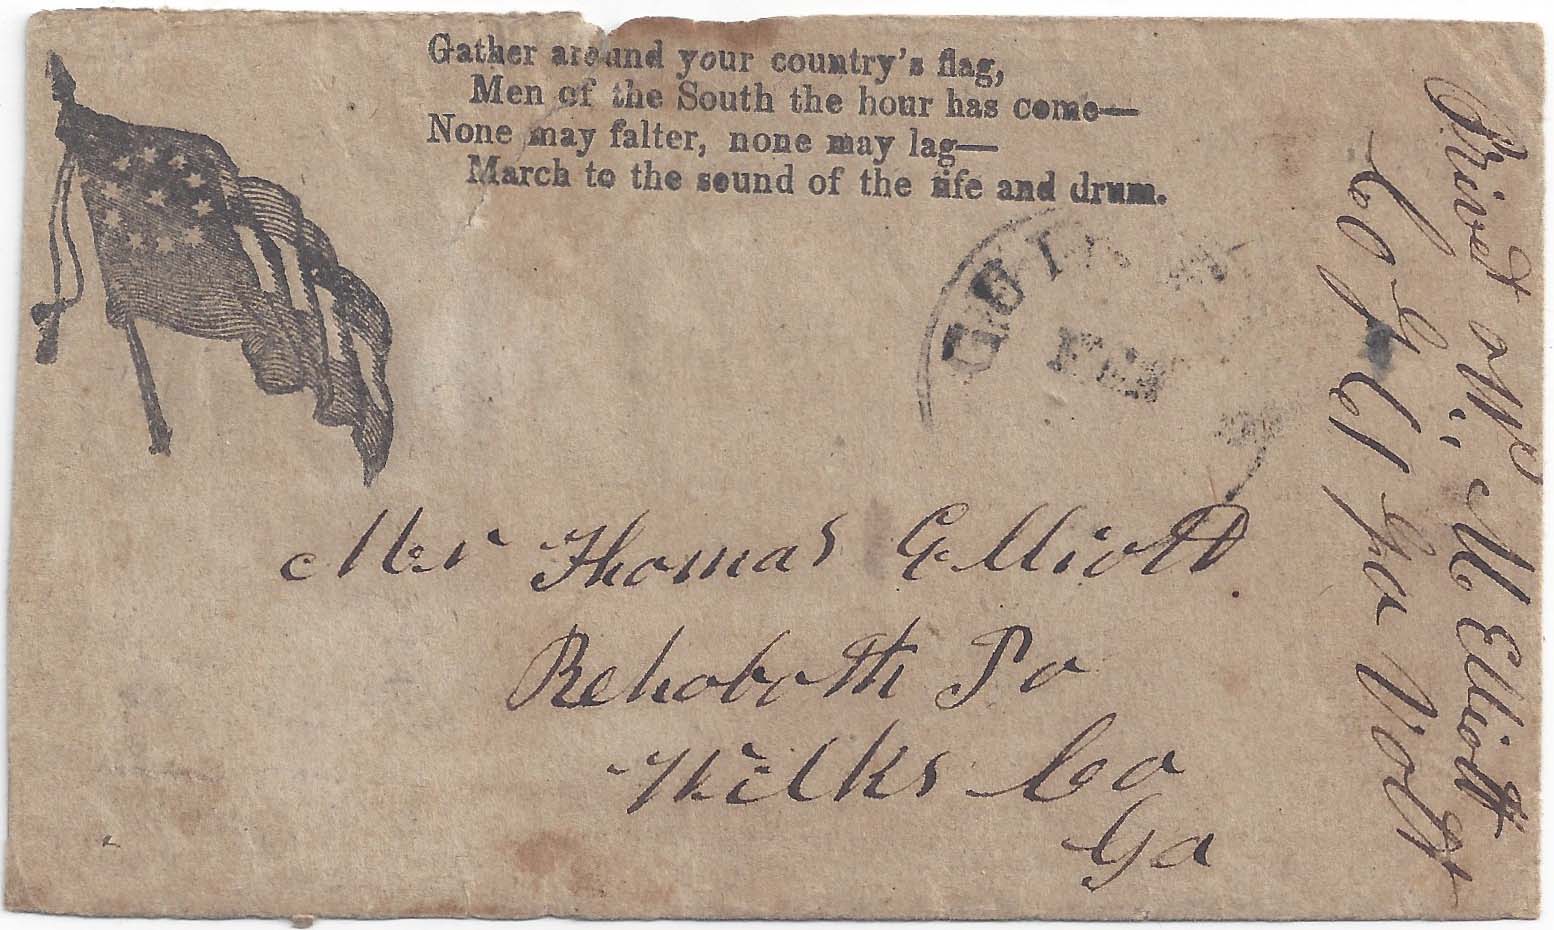 Gather around your country's flag,
Men of the South the hour has come—
None may falter, none may lag—
March to the sound of the fife and drum.
Mr Thomas Elliott
Rehoboth Po
Wilks Co
Ga
M Elliott
Co G 61 Ga Vott